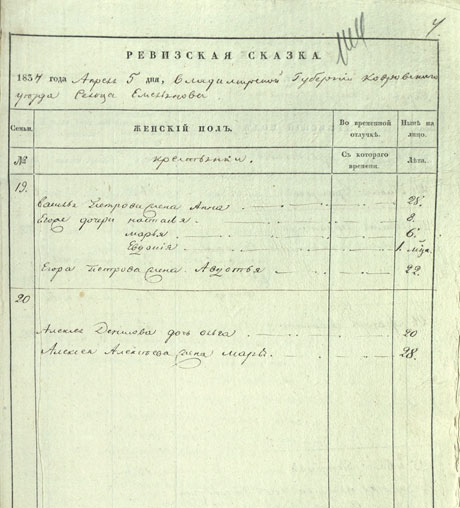 7.
РЕВИЗСКАЯ СКАЗКА.
1834 года Апреля 5 дня, Владимирской Губернии Ковровского
уезда Сельца Емельянова
Семьи. ЖЕНСКІЙ ПОЛЪ. Во временной отлучкѣ. Нынѣ на лицо.
№ крестьянки. Съ котораго времени. Лѣта.
19.
Василья Петрова жена Анна 28.
Егора дочери Наталья 8.
Марья 6.
Евдокія 1.
Егора Петрова жена Авдотья 22.
20
Данилова дочь Ольга 20
Алексея Алексеева жена Марья 28.